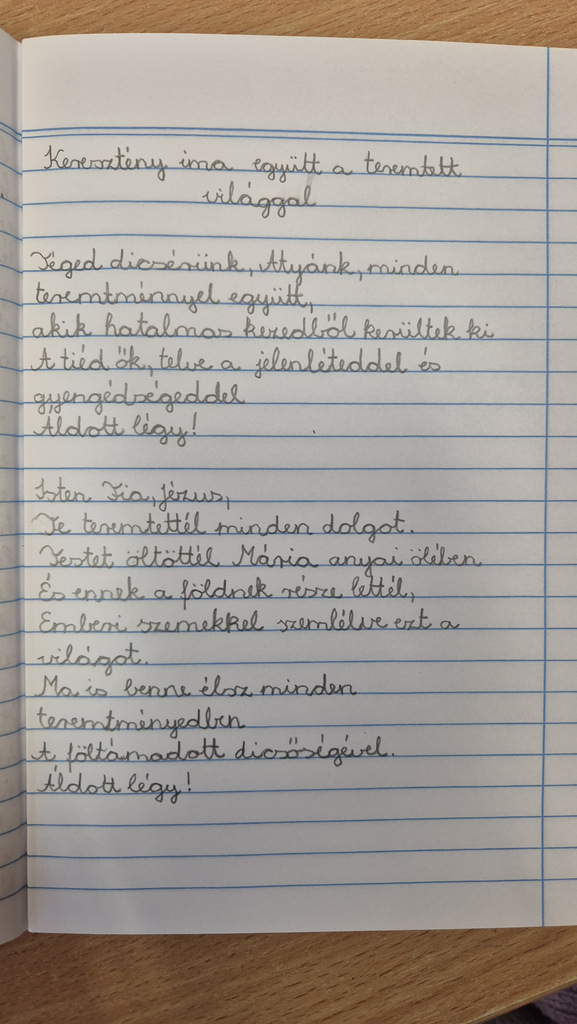 Keresztény ima együtt a teremtett
világgal
Téged dicsérünk, Atyánk, minden
teremtménnyel együtt,
akik hatalmas kezedből kerültek ki
A tiéd ők, telve a jelenléteddel és
gyengédségeddel
Áldott légy!
Isten Fia, Jézus,
Te teremtettél minden dolgot.
Testet öltöttél Mária anyai ölében
És ennek a földnek része lettél,
Emberi szemekkel szemlélve ezt a
világot.
Ma is benne élsz minden
teremtményedben
A föltámadott dicsőségével.
Áldott légy!